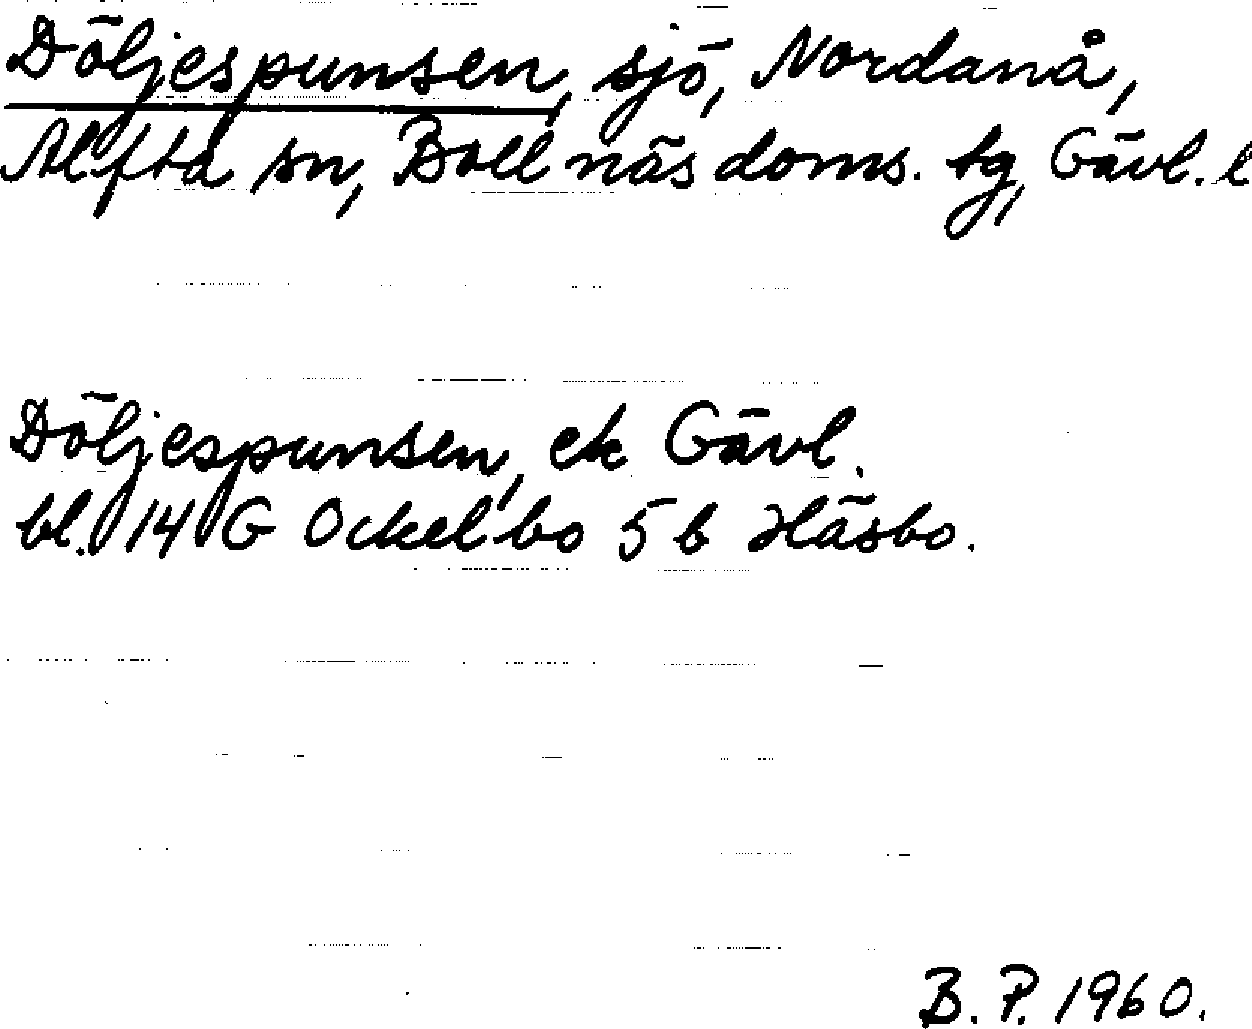 Döljespunsen, sjö, Nordanå,
Alfta sn, Bollnäs doms. tg, Gävl. l
Döljespunsen, ek Gävl.
bl. 14 G Ockelbo 5 b Häsbo.
B. P. 1960.